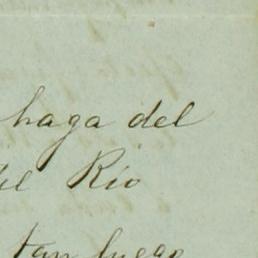 haga del
del Rio
tan luego